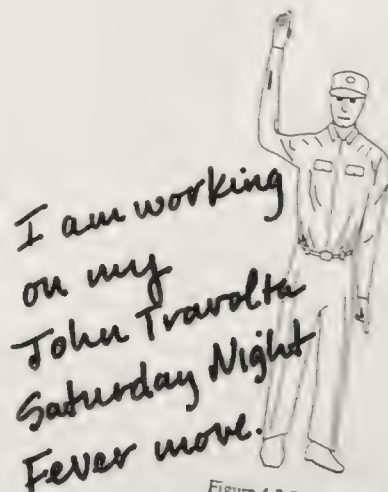 I am working
on my
John Travolta
Saturday Night
Fever move.
Figure